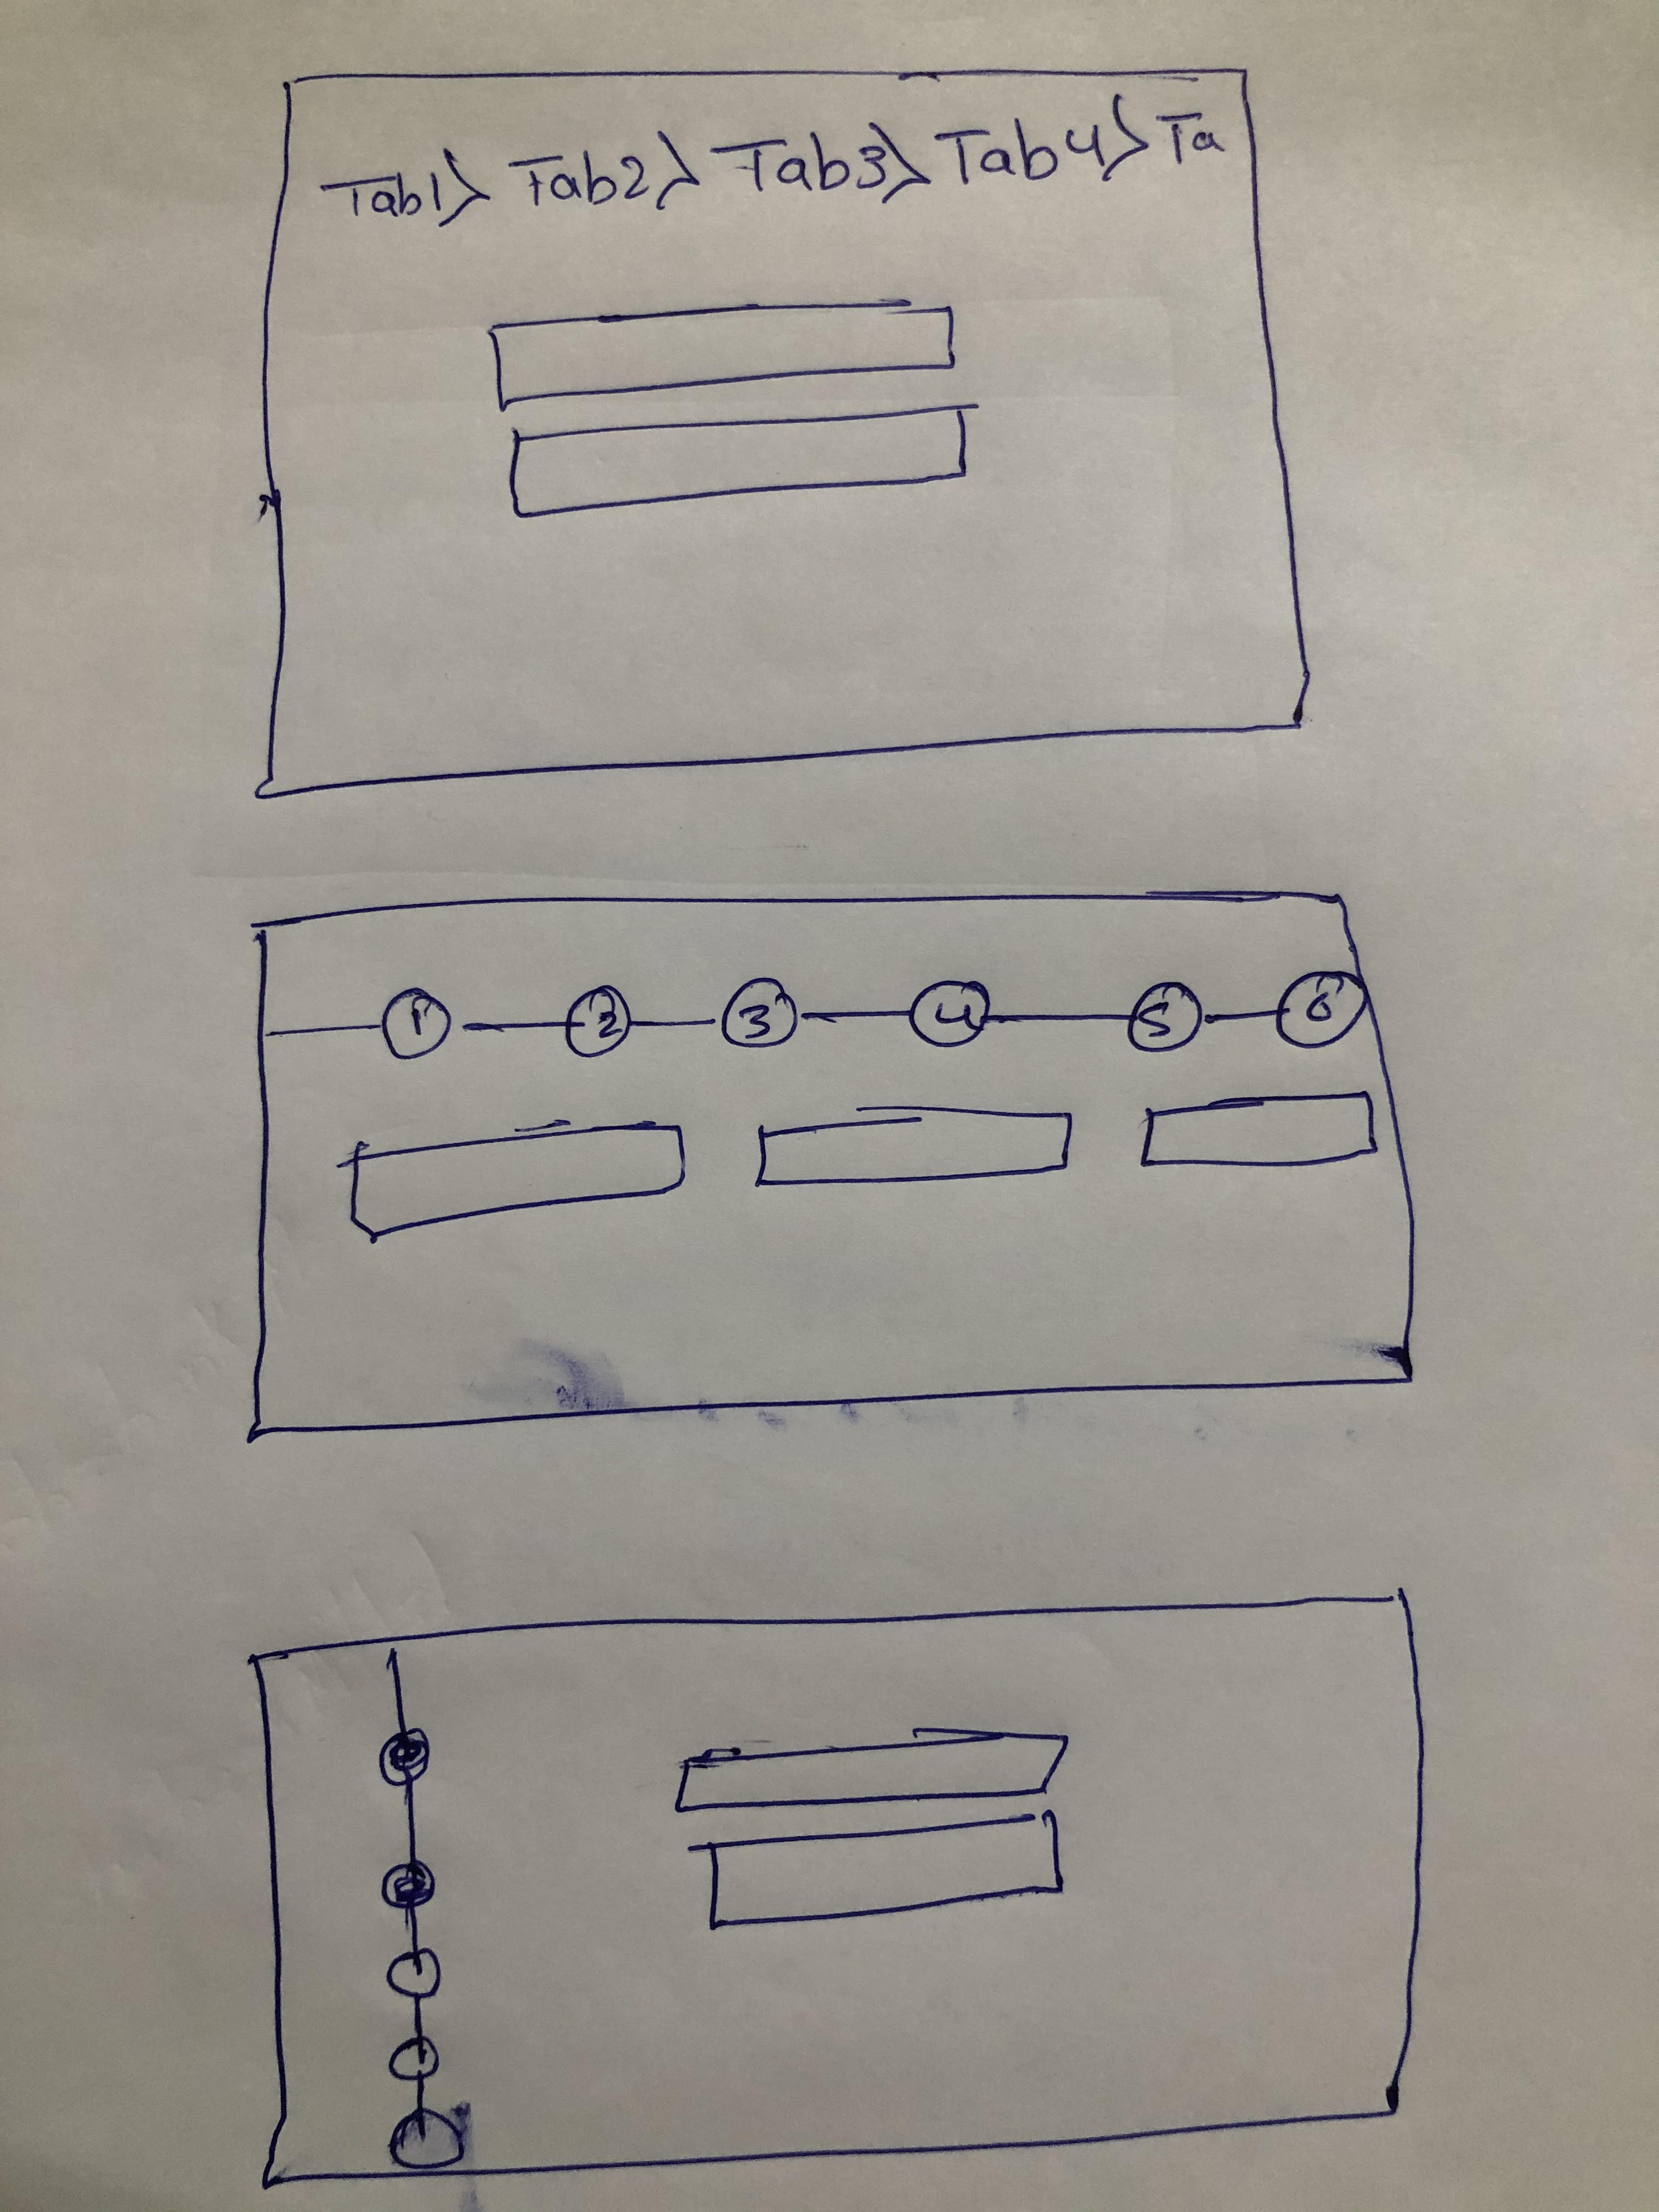 Tab1> Tab2> Tab3> Tab4> Ta
1 2 3 4 5 6